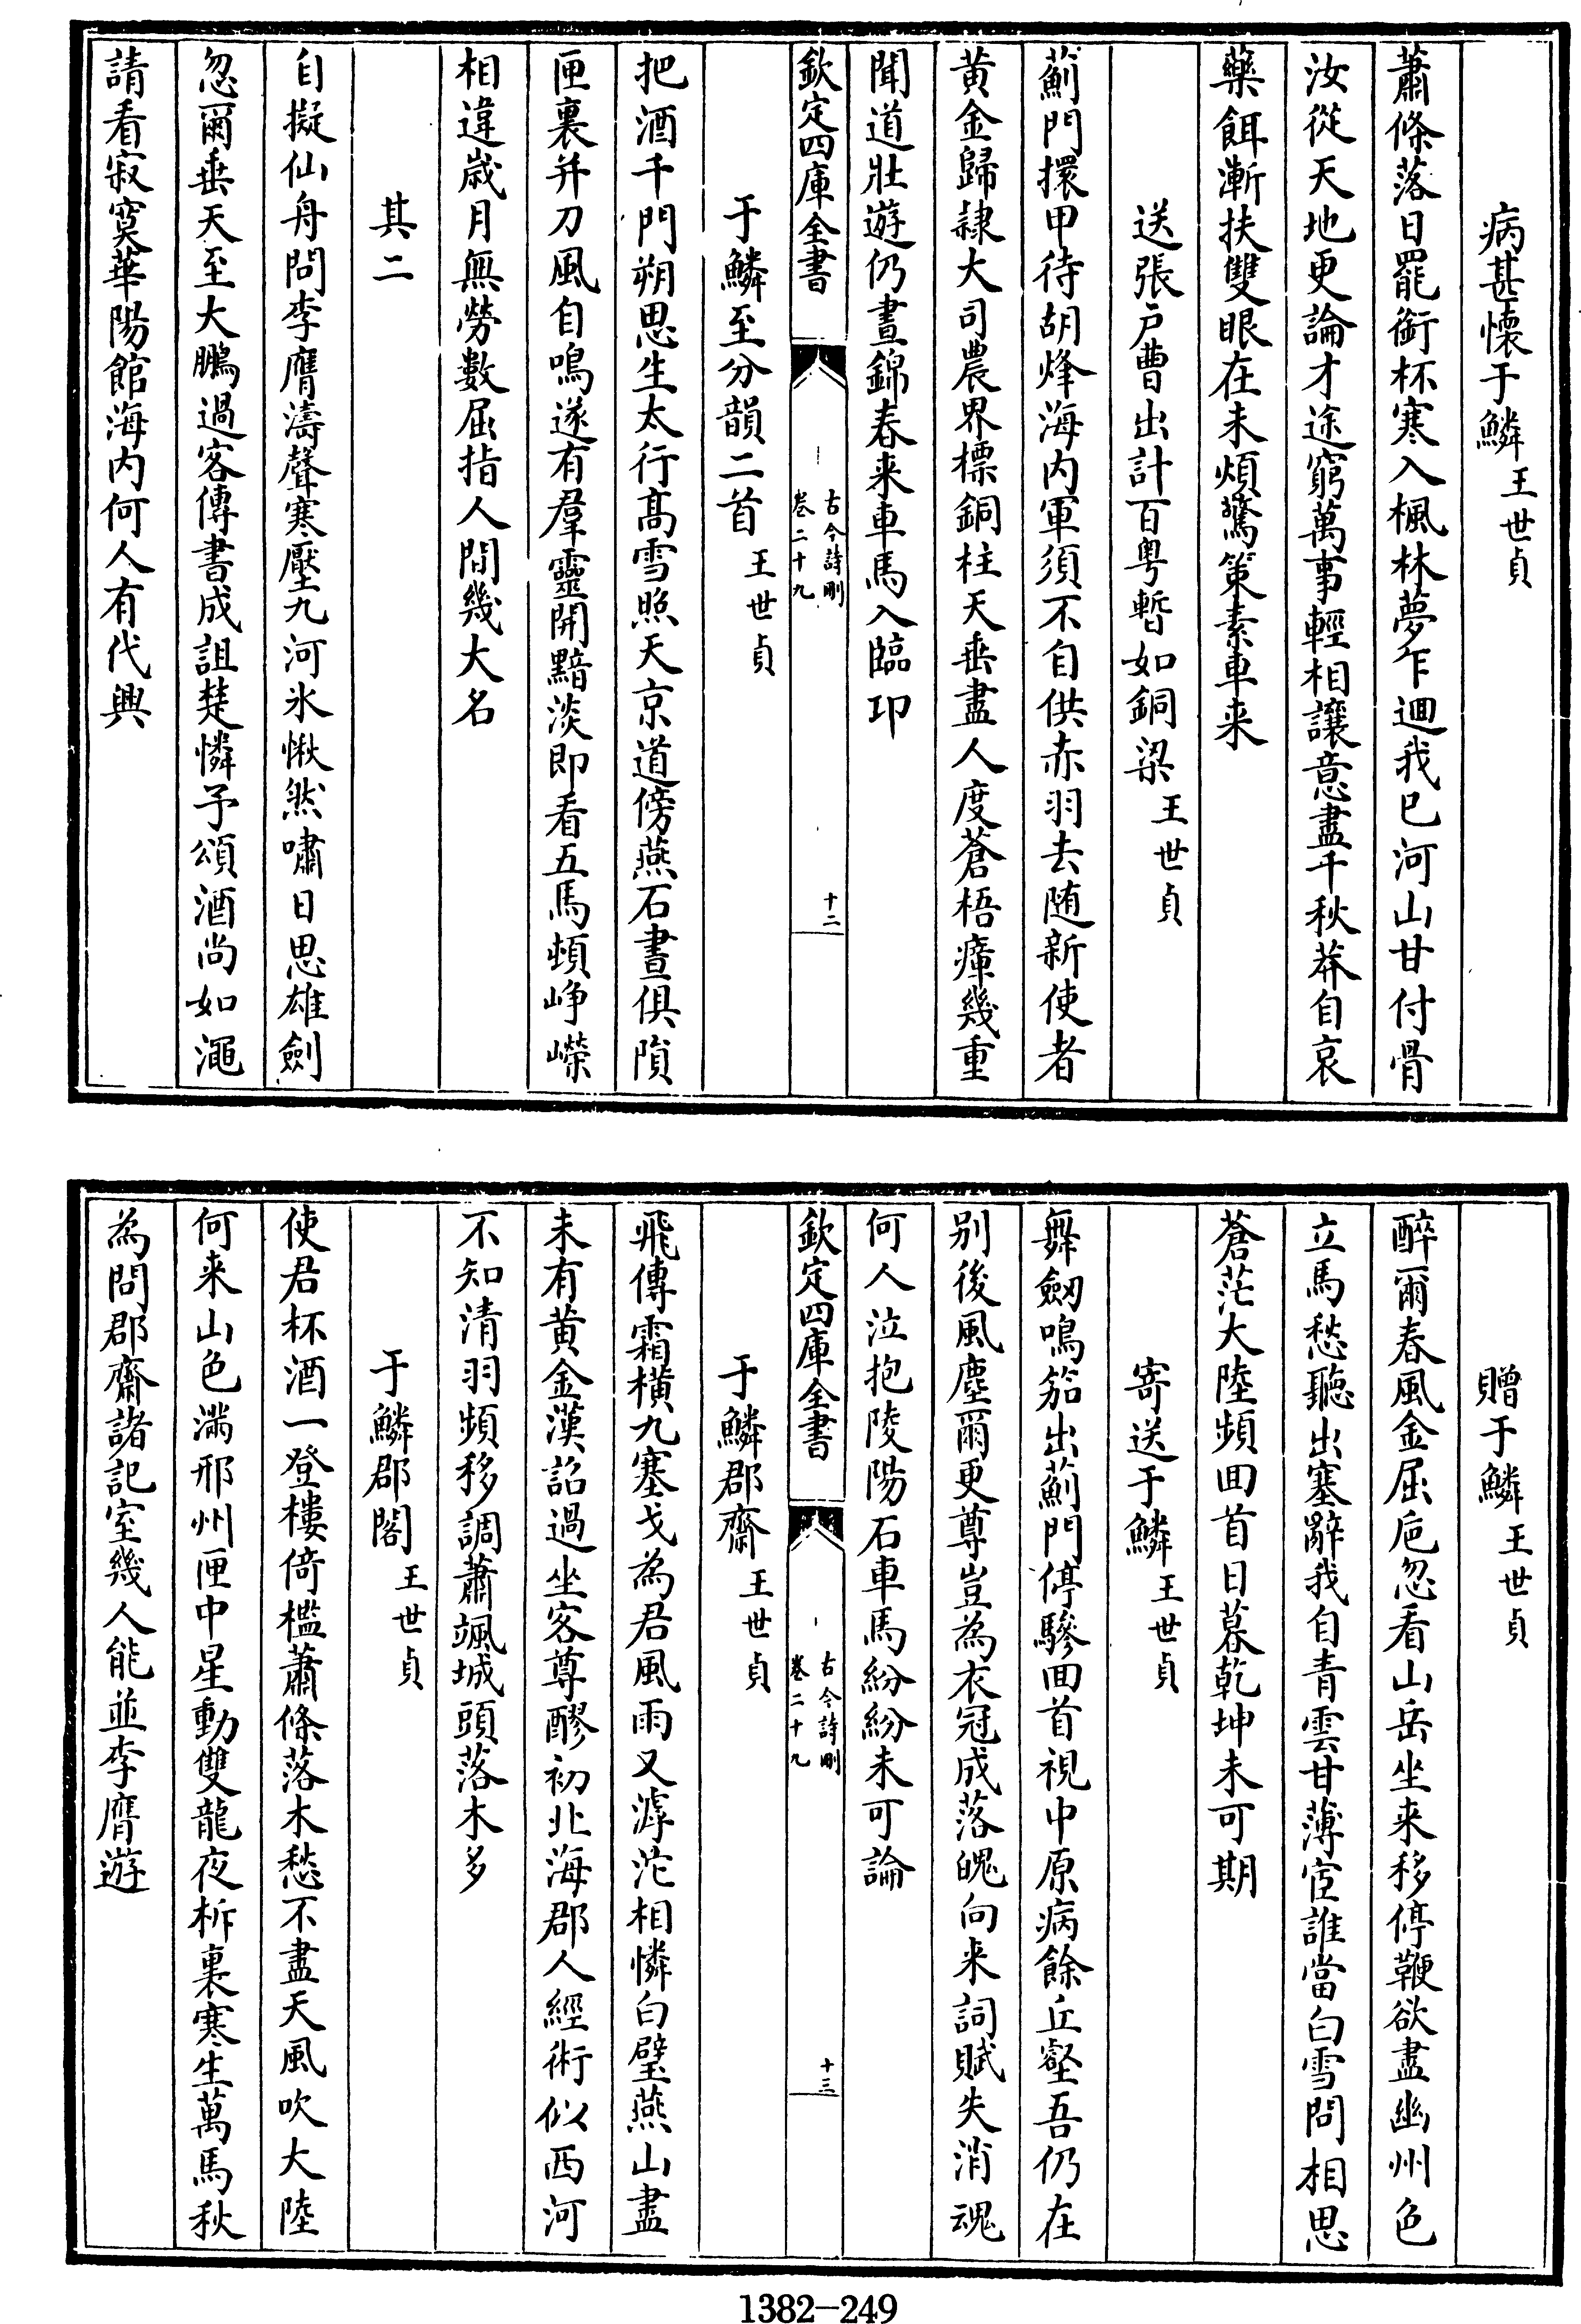 病甚懷于鱗王世貞
蕭條落日罷銜杯寒入楓林夢乍迴我已河山甘付骨
汝從天地更論才途窮萬事輕相讓意盡千秋莽自哀
藥餌漸扶雙眼在未煩驚策素車来
送張戸曹出計百粤暫如銅梁王世貞
薊門擐甲待胡烽海内軍須不自供赤羽去随新使者
黄金歸隷大司農界標銅柱天垂盡人度蒼梧瘴幾重
聞道壯遊仍晝錦春来車馬入臨卭
欽定四庫全書
古今詩刪
卷二十九
十二
于鱗至分韻二首王世貞
把酒千門朔思生太行髙雪照天京道傍燕石晝俱隕
匣裏并刀風自鳴遂有羣靈開黯淡即看五馬頓峥嶸
相違歳月無勞數屈指人間幾大名
其二
自擬仙舟問李膺濤聲寒壓九河氷愀然嘯日思雄劍
忽爾垂天至大鵬過客傳書成詛楚憐予頌酒尚如澠
請看寂寞華陽館海内何人有代興
贈于鱗王世貞
醉爾春風金屈巵忽看山岳坐来移停鞭欲盡幽州色
立馬愁聽出塞辭我自青雲甘薄宦誰當白雪問相思
蒼茫大陸頻囬首日暮乾坤未可期
寄送于鱗王世貞
舞劔鳴笳出薊門停驂囬首視中原病餘丘壑吾仍在
别後風塵爾更尊豈為衣冠成落魄向来詞賦失消魂
何人泣抱陵陽石車馬紛紛未可論
欽定四庫全書
古今詩刪
卷二十九
十三
于鱗郡齋王世貞
飛傳霜横九塞戈為君風雨又滹沱相憐白璧燕山盡
未有黄金漢詔過坐客尊醪初北海郡人經術似西河
不知清羽頻移調蕭颯城頭落木多
于鱗郡閣王世貞
使君杯酒一登樓倚檻蕭條落木愁不盡天風吹大陸
何来山色滿邢州匣中星動雙龍夜柝裏寒生萬馬秋
為問郡齋諸記室幾人能並李膺遊
1382-249